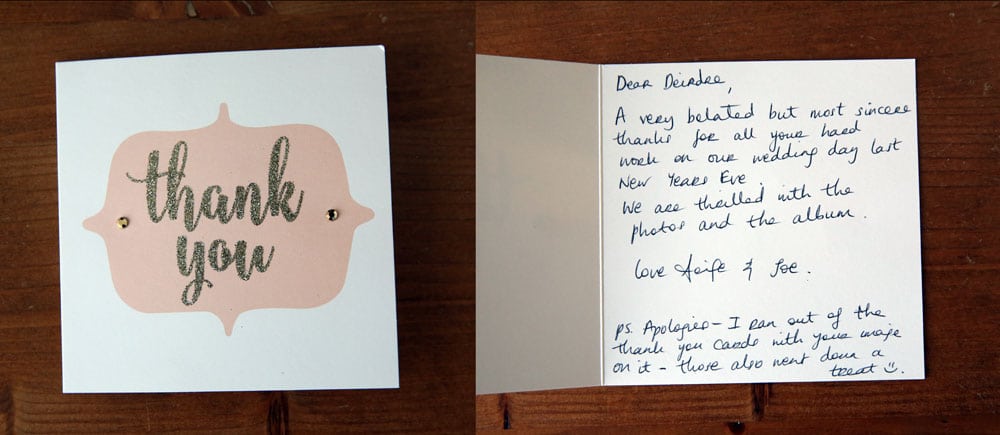 thank
you
Dear Deirdre,
A very belated but most sincere
thanks for all your hard
work on our wedding day last
New Years Eve.
We are thrilled with the
photos and the album.
love Aoife & Joe.
ps. Apologies - I ran out of the
thank you cards with your image
on it - those also went down a
treat